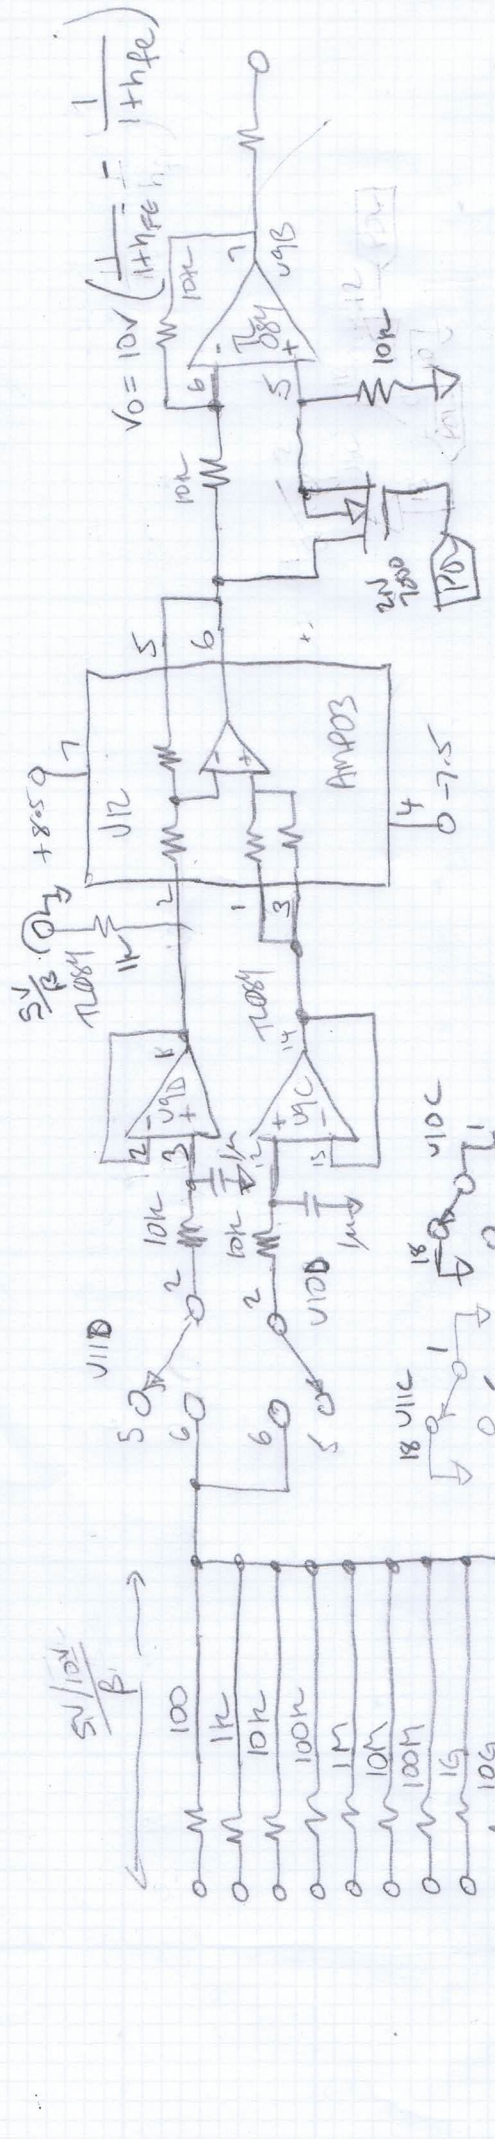 Vo = 10V ( 1/1+hFE - 1/1+hfe )
10k
6
7
TL
084
U9B
5
10k
10k
2N
7000
PDN
5
6
7
+8.5
U12
AMP03
4
-7.5
2
1
3
5V/β
TL084
1k
TL084
U9D
2
3
1
U9C
12
13
14
10k
1μ
10k
1μ
U11D
5
6
2
U10D
6
5
2
U10C
18
1
18
U11C
1
5V/10V
β
100
1k
10k
100k
1M
10M
100M
1G
10G